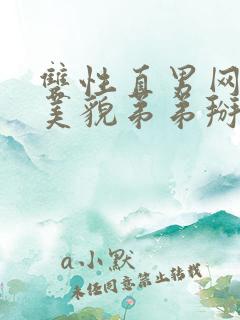 雙性直男网
美貌弟弟掰
a小默
未经同意禁止转载